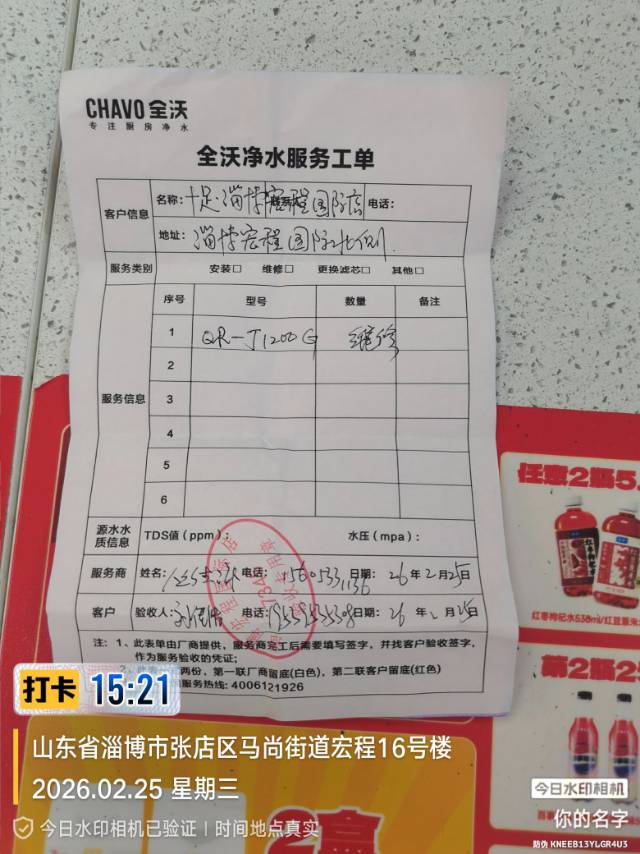 CHAVO 全沃
专注厨房净水
全沃净水服务工单
客户信息
名称：十足·淄博宏程国际店
电话：
地址：淄博宏程国际北侧
服务类别 安装□ 维修□ 更换滤芯□ 其他□
服务信息
序号 型号 数量 备注
1 QR-J1200G 维修
2
3
4
5
6
源水水质信息 TDS值（ppm）： 水压（mpa）：
服务商 姓名： 电话： 日期：26年2月25日
客户 验收人： 电话： 日期：26年2月25日
注：1、此表单由厂商提供，服务商完工后需要填写签字，并找客户验收签字，
作为服务验收的凭证；
两份，第一联厂商留底(白色)，第二联客户留底(红色)
服务热线：4006121926
任意2瓶5.
红枣枸杞水538ml/红豆薏米水
第2瓶2
2盒
打卡 15:21
山东省淄博市张店区马尚街道宏程16号楼
2026.02.25 星期三
今日水印相机已验证｜时间地点真实
今日水印相机
你的名字
防伪 KNEEB13YLGR4U3